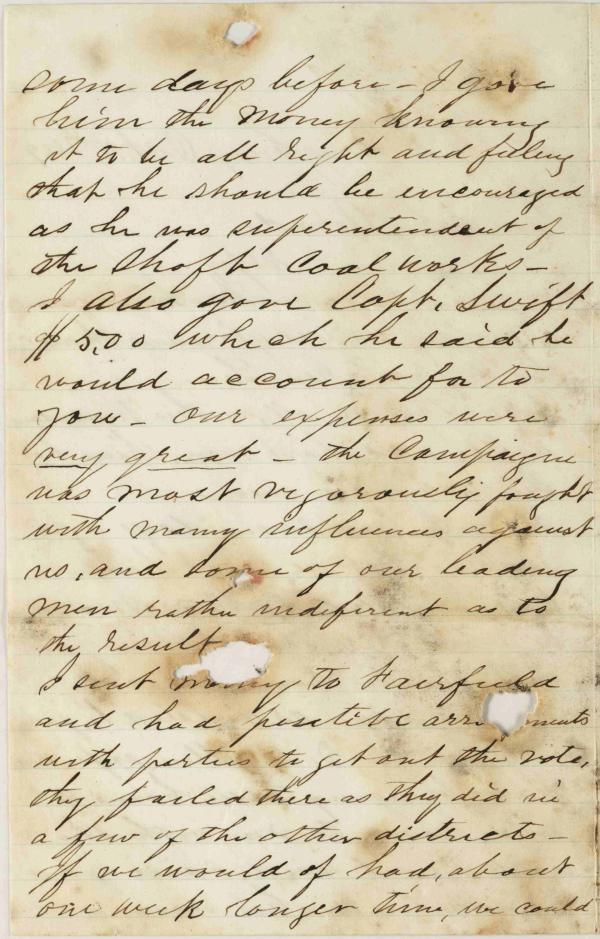 some days before - I gave
him the money knowing
it to be all right and feeling
that he should be encouraged
as he was superintendent of
the Shaft Coal works -
I also gave Capt. Swift
$5.00 which he said he
would account for to
you - our expenses were
very great - the Campaign
was most vigorously fought
with many influences against
us, and some of our leading
men rather indiferent as to
the result
I sent money to Fairfield
and had positive
with parties to get out the vote,
they failed there as they did in
a few of the other districts -
If we would of had, about
one week longer time, we could